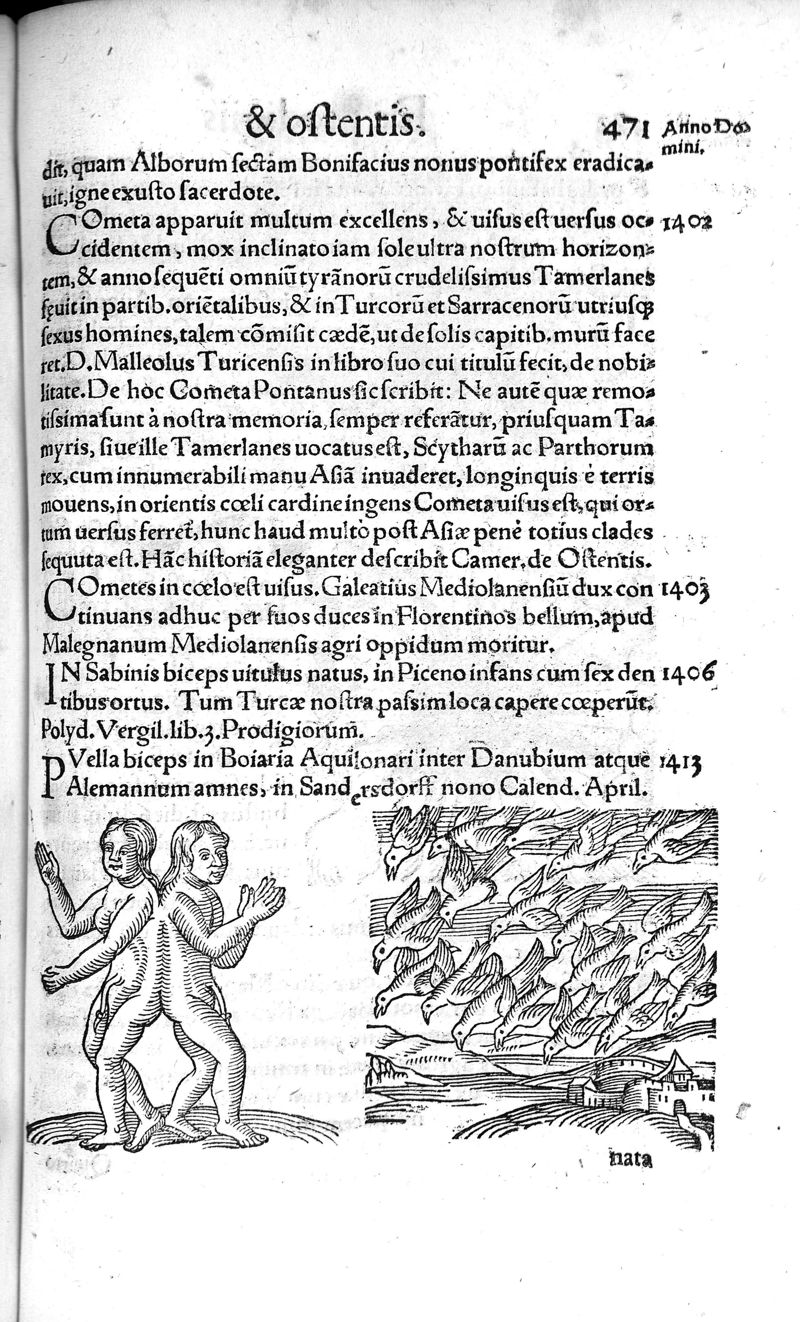 & oſtentis. 471 Anno Do⸗
mini.
dit, quam Alborum ſectam Bonifacius nonus pontifex eradica⸗
uit, igne exuſto ſacerdote.
COmeta apparuit multum excellens, & uiſus eſt uerſus oc⸗ 1402
cidentem, mox inclinato iam ſole ultra noſtrum horizon⸗
tem, & anno ſequẽti omniũ tyrãnorũ crudeliſsimus Tamerlanes
ſęuit in partib. oriẽtalibus, & in Turcorũ et Sarracenorũ utriuſq́
ſexus homines, talem cõmiſit cædẽ, ut de ſolis capitib. murũ face
ret. D. Malleolus Turicenſis in libro ſuo cui titulũ fecit, de nobi⸗
litate. De hoc Cometa Pontanus ſic ſcribit: Ne autẽ quæ remo⸗
tiſsima ſunt à noſtra memoria, ſemper referãtur, priuſquam Ta⸗
myris, ſiue ille Tamerlanes uocatus eſt, Scytharũ ac Parthorum
rex, cum innumerabili manu Aſiã inuaderet, longinquis è terris
mouens, in orientis cœli cardine ingens Cometa uiſus eſt, qui or⸗
tum uerſus ferret, hunc haud multò poſt Aſiæ penè totius clades
ſequuta eſt. Hãc hiſtoriã eleganter deſcribit Camer. de Oſtentis.
COmetes in cœlo eſt uiſus. Galeatius Mediolanenſiũ dux con 1403
tinuans adhuc per ſuos duces in Florentinos bellum, apud
Malegnanum Mediolanenſis agri oppidum moritur.
IN Sabinis biceps uitulus natus, in Piceno infans cum ſex den 1406
tibus ortus. Tum Turcæ noſtra paſsim loca capere cœperũt.
Polyd. Vergil. lib. 3. Prodigiorum.
PVella biceps in Boiaria Aquilonari inter Danubium atque 1413
Alemannum amnes, in Sandersdorff nono Calend. April.
nata